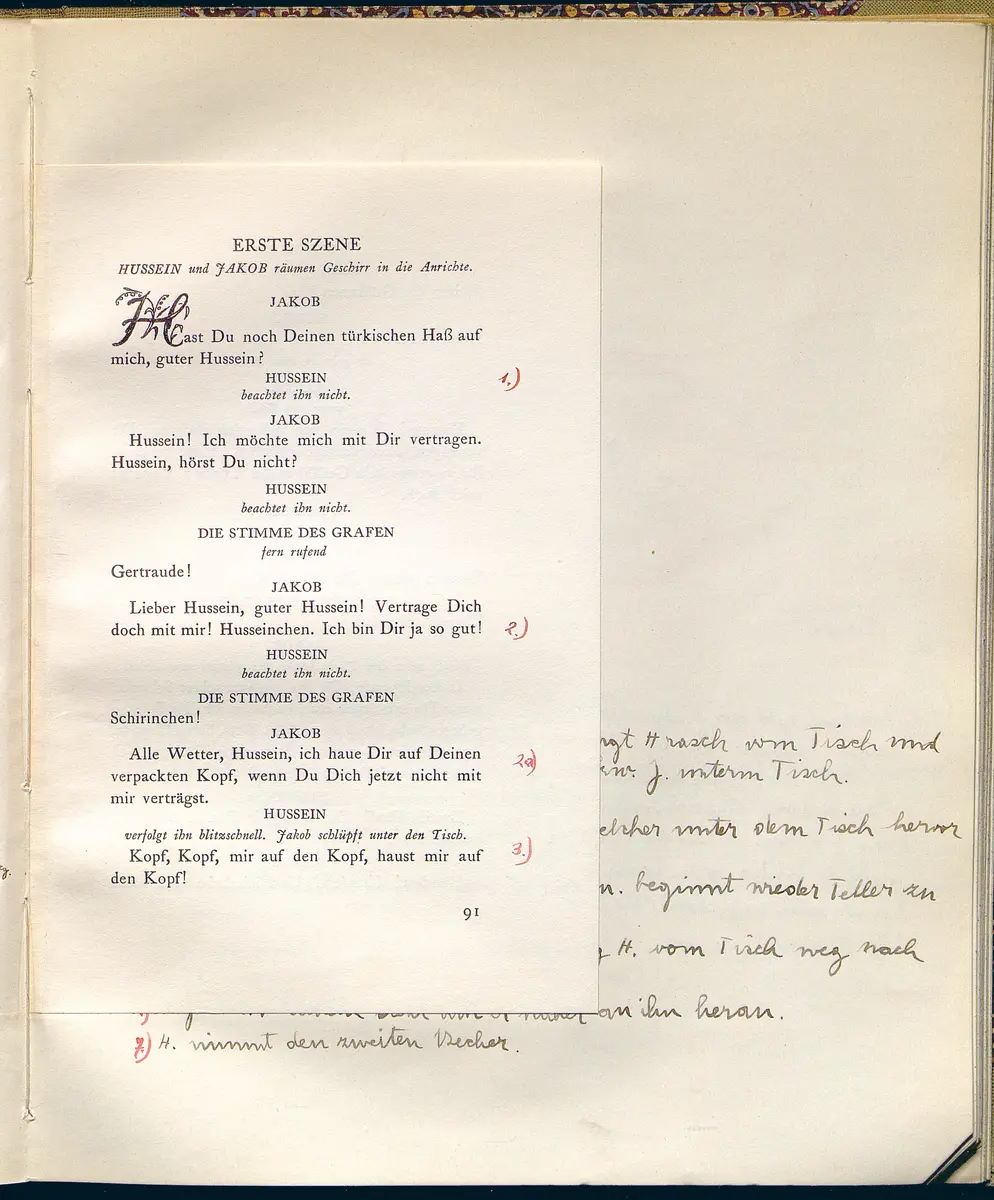 ERSTE SZENE
HUSSEIN und JAKOB räumen Geschirr in die Anrichte.
JAKOB
Hast Du noch Deinen türkischen Haß auf
mich, guter Hussein?
HUSSEIN
1.)
beachtet ihn nicht.
JAKOB
Hussein! Ich möchte mich mit Dir vertragen.
Hussein, hörst Du nicht?
HUSSEIN
beachtet ihn nicht.
DIE STIMME DES GRAFEN
fern rufend
Gertraude!
JAKOB
Lieber Hussein, guter Hussein! Vertrage Dich
doch mit mir! Husseinchen. Ich bin Dir ja so gut!
2.)
HUSSEIN
beachtet ihn nicht.
DIE STIMME DES GRAFEN
Schirinchen!
JAKOB
Alle Wetter, Hussein, ich haue Dir auf Deinen
verpackten Kopf, wenn Du Dich jetzt nicht mit
2a)
mir verträgst.
HUSSEIN
verfolgt ihn blitzschnell. Jakob schlüpft unter den Tisch.
Kopf, Kopf, mir auf den Kopf, haust mir auf
3.)
den Kopf!
91
H rasch vom Tisch und
J. unterm Tisch.
unter dem Tisch hervor
beginnt wieder Teller zu
H. vom Tisch weg nach
an ihn heran.
7.) H. nimmt den zweiten Becher.